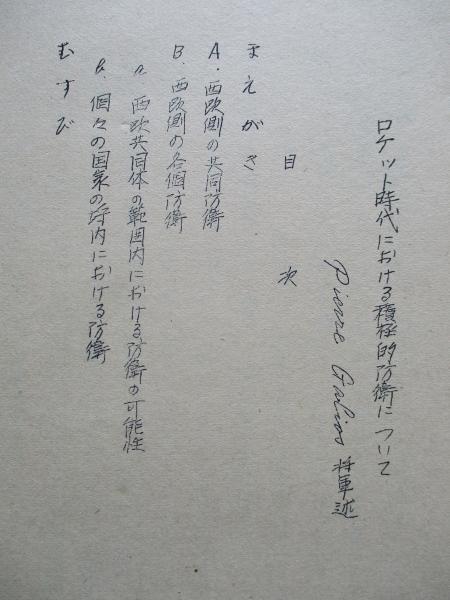 ロケット時代における積極的防衛について
Pierre Gallois 将軍述
目次
まえがき
A. 西欧側の共同防衛
B. 西欧側の各個防衛
a. 西欧共同体の範囲内における防衛の可能性
b. 個々の国家の枠内における防衛
むすび